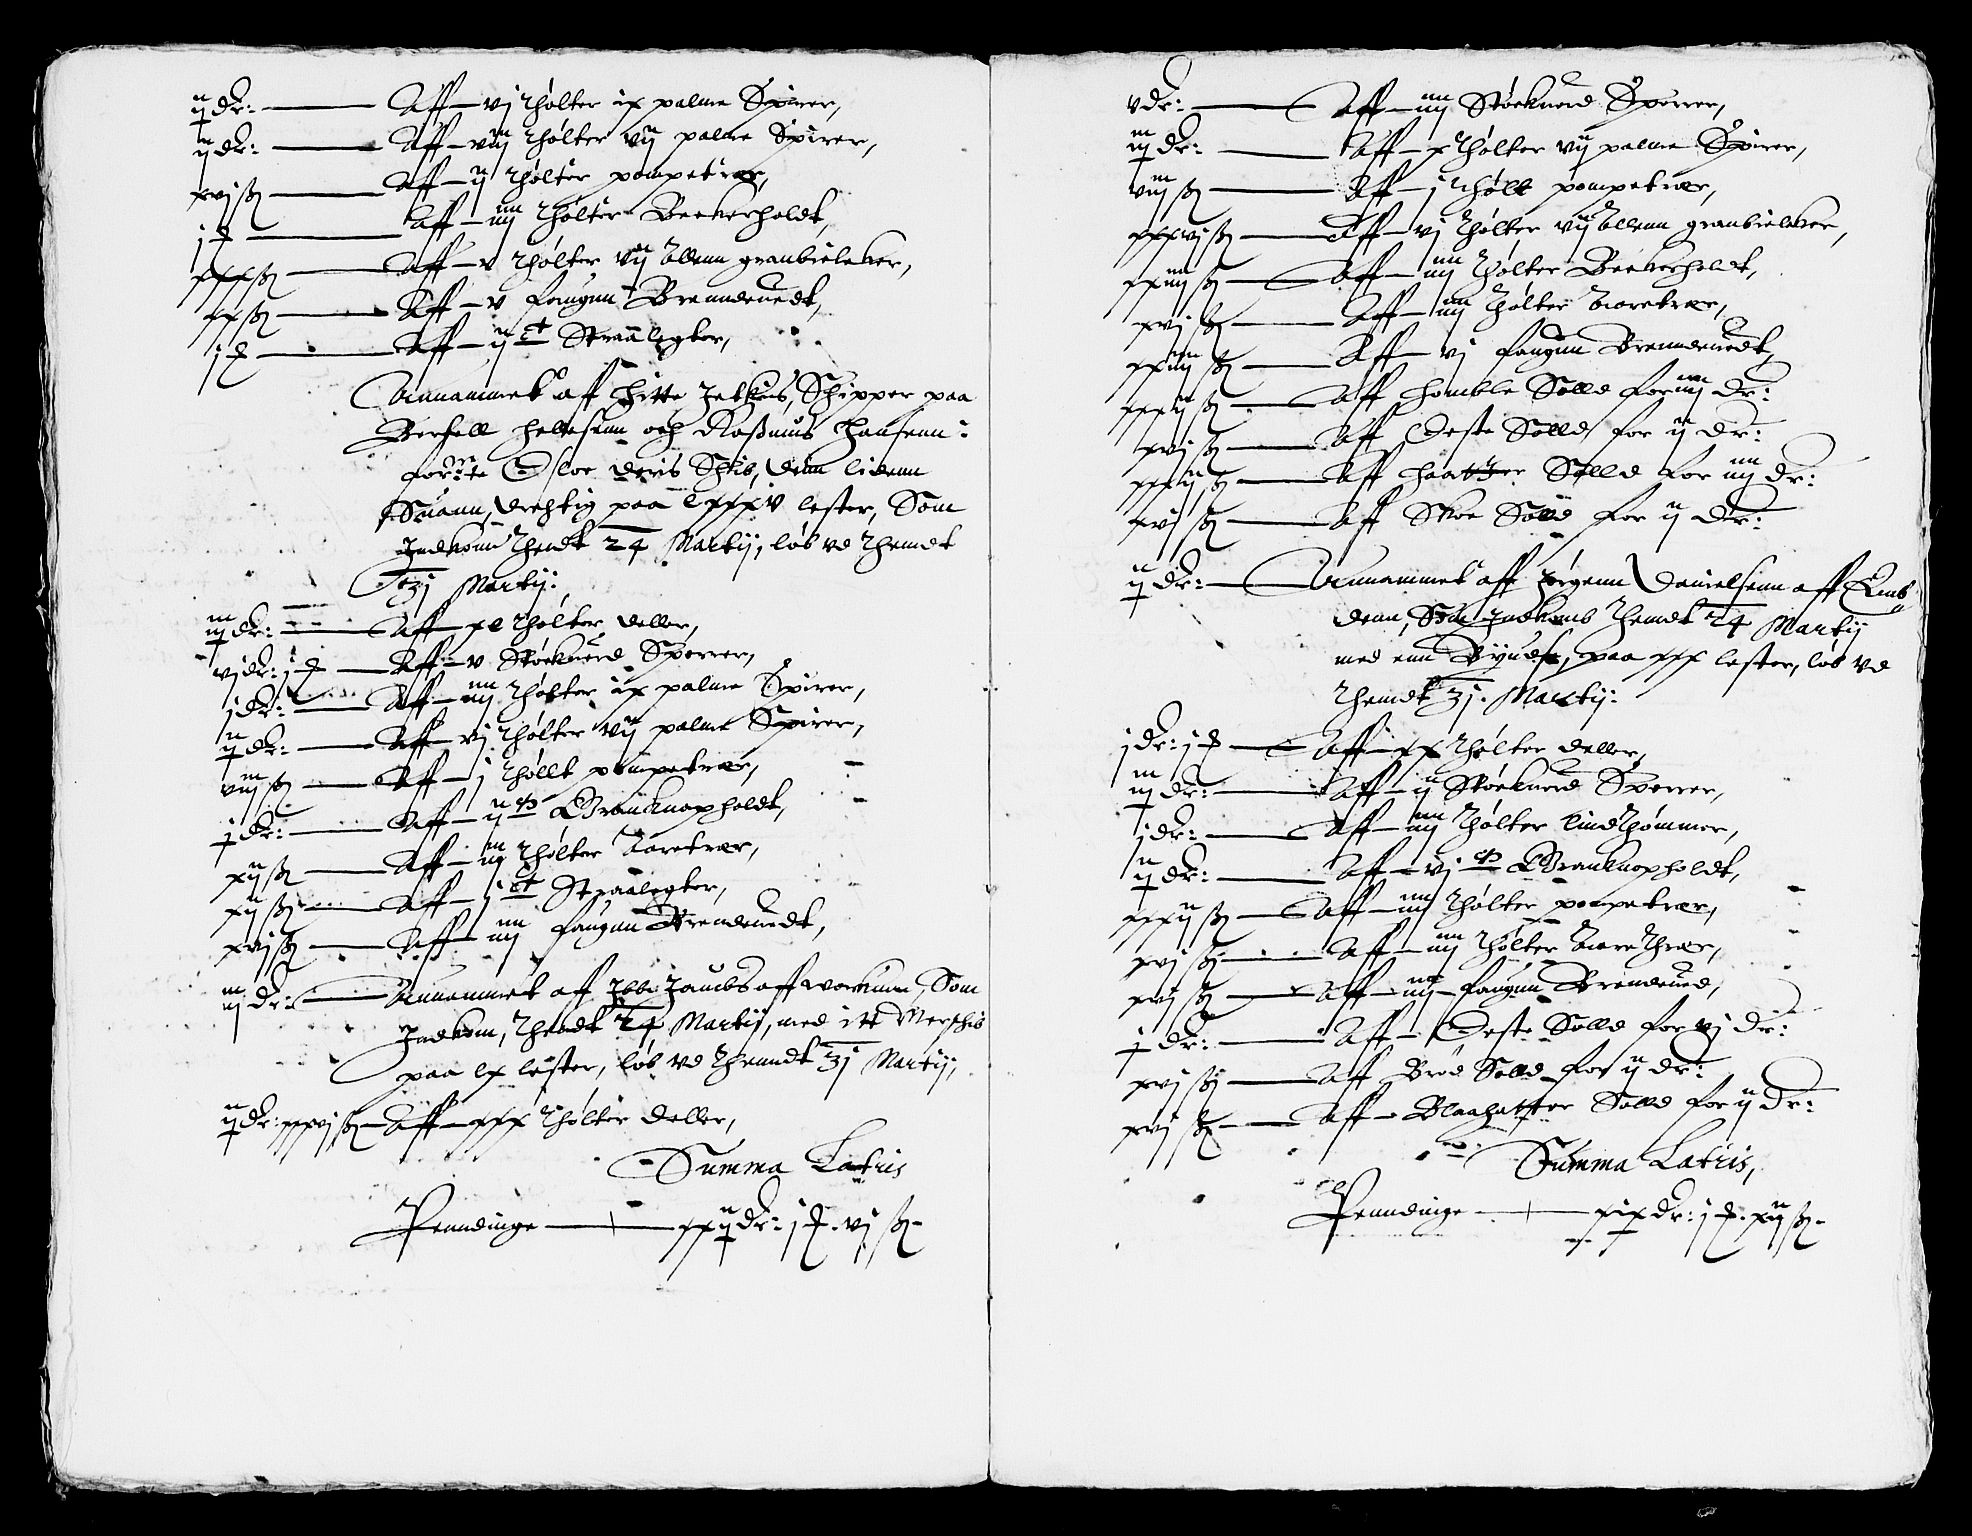 ij dr: — Aff — vj tholter ix palme Spirer,
ij dr: — Aff — viij tholter vij palme Spirer,
xvj ß — Aff — ij tholter pompetrær,
j — Aff — iiij tholter Becherholdt,
xxx ß — Aff — v tholter vij allenn granbielcker,
xx ß — Aff — v faugnn Brendeuedt,
j — Aff — ij ct Straalegter,
Annammet aff Hitte Jelkis, Schipper paa
 och Rasmus Hansenn
forne Osloe deris Skib, denn lidenn
Suann, drechtig paa lxxxv lester, Som
Indkom thendt 24 Martij, løb vd thendt
31 Martij:
iij dr: — Aff — xl tholter deller,
vj dr: j — Aff — v Stocknerd Sperrer,
j dr: — Aff — iiij tholter ix palme Spirer,
ij dr: — Aff — vj tholter vij palme Spirer,
viij ß — Aff — j thollt pompetrær,
j dr: — Aff — ij Granknapholdt,
xij ß — Aff — iij tholter Aaretrær,
xij ß — Aff — j ct Straalegter,
xvj ß — Aff — iiij faugnn Brendeuedt,
iij dr: — Annammet aff Jbbe Jacobs aff worckum, Som
Indkom, thendt 24 Martij, med itt Merschib
paa lx lester, løb vd thenndt 31 Martij,
ij dr: xxxvj ß — Aff — xxx tholter deller,
Summa Latris
Penndinge — xxij dr: j . vj ß
v dr: — Aff — iiij Stocknerd Sperrer,
iij dr: — Aff — x tholter vij palme Spirer,
viij ß — Aff — j tholt pompetrær,
xxxvj ß — Aff — vj tholter vij allenn granbielcker,
xxiiij ß — Aff — iiij tholter Becherholdt,
xvj ß — Aff — iiij tholter Aaretrær,
xxiiij ß — Aff — vj faugnn Brendeuedt,
xxxij ß — Aff homble Solld for iiij dr:
xvj ß — Aff Oeste Solld for ij dr:
xxxij ß — Aff haatter Solld for iiij dr:
xvj ß — Aff Skoe Solld for ij dr:
ij dr: — Annammet aff Jørgenn Danielsenn aff Emb
denn, Som Indkomb thendt 24 Martij
med enn , paa xxx lester, løb vd
thendt 31. Martij:
j dr: j — Aff — xx tholter deller,
iij dr: — Aff — ij Stocknerd Sperrer,
j dr: — Aff — iiij tholter lindthømmer,
ij dr: — Aff — vj Granknapholdt,
xxxij ß — Aff — iiij tholter pompetrær,
xvj ß — Aff — iiij tholter Aarethrær,
xvj ß — Aff — iiij faugnn Brendeued,
j dr: — Aff — Oeste Solld for vj dr:
xvj ß — Aff Brød Solld for ij dr:
xvj ß — Aff — Blaahatter Solld for ij dr:
Summa Latris,
Penndinge — xix dr: j . xij ß